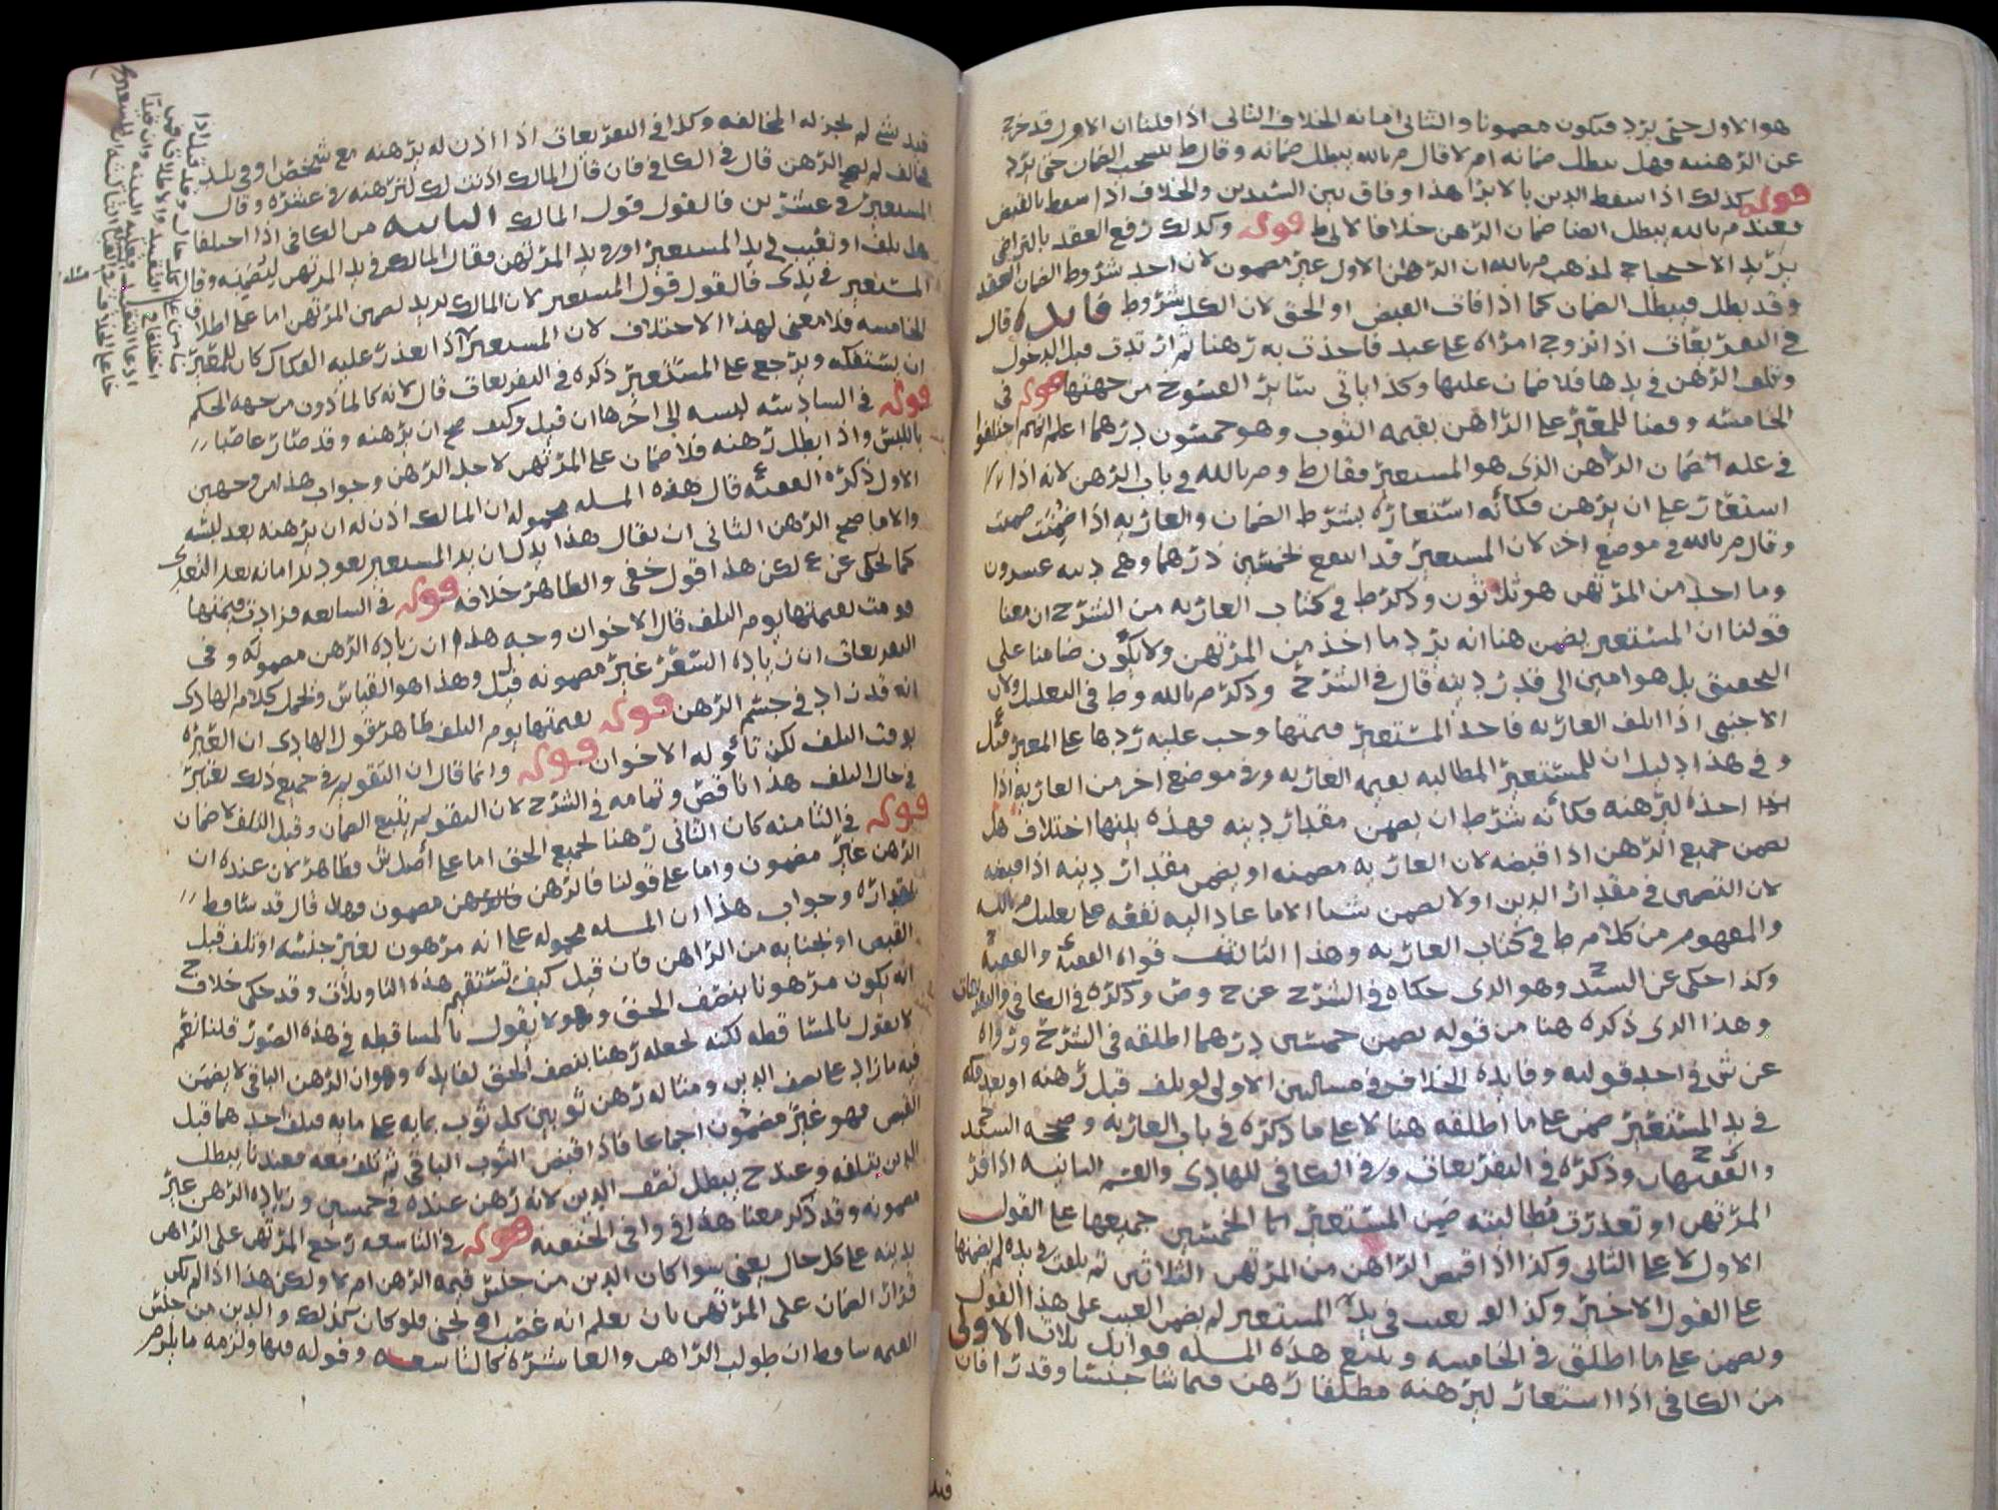 هو الاول حتى يرد فيكون مضمونا والثاني امانه الخلاف الثاني اذا قلنا ان الاول قد خرج
عن الرهنيه فهل يبطل ضمانه ام لا قال م بالله يبطل ضمانه وقال ط يستحب الضمان حتى يرد
قوله كذلك اذا سقط الدين بالابرا هذا وفاق بين السيدين والخلاف اذا سقط بالقبض
فعند م بالله يبطل ايضا ضمان الرهن خلافا لابي ط قوله وكذلك رفع العقد بالتراضي
يريد الاحتجاج لمذهب م بالله ان الرهن الاول غير مضمون لان احد شروط الضمان العقد
وقد بطل فيبطل الضمان كما اذا فات القبض او الحق لان الكل شروط فايده قال
في التفريعات اذا تزوج امراه على عبد فاخذت به رهنا ثم ارتدت قبل الدخول
وتلف الرهن في يدها فلا ضمان عليها وكذا ياتي سائر الفسوخ من جهتها قوله في
الخامسه ومعنا للمعير على الراهن بقيمه الثوب وهو خمسون درهما اعلم انهم اختلفوا
في عله ضمان الراهن الذي هو المستعير فقال ط وم بالله في باب الرهن لانه اذا
استعار على ان يرهن فكأنه استعاره بشرط الضمان والعاريه اذا ضمنت ضمنت
وقال م بالله في موضع اخر لان المستعير قد انتفع بخمسين درهما وهي دينه عشرون
وما اخذ من المرتهن هو ثلاثون وذكر ط في كتاب العاريه من الشرح ان معنا
قولنا ان المستعير يضمن هنا انه يرد ما اخذ من المرتهن ولا يكون ضامنا على
التحقيق بل هو امين الى قدر دينه قال في الشرح وذكر م بالله وط في التعليل ولان
الاجنبي اذا اتلف العاريه فاخذ المستعير قيمتها وجب عليه ردها على المعير قيل
وفي هذا دليل ان للمستعير المطالبه بقيمه العاريه وفي موضع اخر من العاريه اذا
اخذه ليرهنه فكأنه شرط ان يضمن مقدار دينه فهذه بينها اختلاف هل
يضمن جميع الرهن اذا قبضه لان العاريه مضمنه او يضمن مقدار دينه اذا قبضه
لان التضمين في مقدار الدين او لا يضمن شيا الا ما عاد اليه نفعه على تعليل م بالله
والمفهوم من كلام ط في كتاب العاريه وهذا الثالث قواه الفقيه والفقيه
وكذا حكى عن السيد وهو الذي حكاه في الشرح عن ح وص وذكره في الكافي والتفريعات
وهذا الذي ذكره هنا من قوله يضمن خمسين درهما اطلقه في الشرح ورواه
عن ش في احد قوليه وفايده الخلاف في مسالتين الاولى لو تلف قبل رهنه او بعد فكه
في يد المستعير ضمن على ما اطلقه هنا لا على ما ذكره في باب العاريه وصححه السيد
والفقيهان وذكره في التفريعات وفي الكافي للهادي والقسم الثانيه اذا افلس
المرتهن او تعذرت مطالبته ضمن المستعير الخمسين جميعها على القول
الاول لا على الثاني وكذا اذا قبض الراهن من المرتهن الثلاثين ثم تلفت في يده لم يضمنها
على القول الاخير وكذا لو تعيب في يد المستعير لم يضمن العيب على هذا القول
ويضمن على ما اطلق في الخامسه ويتبع هذه المسله فوائد ثلاث الاولى
من الكافي اذا استعار ليرهنه مطلقا رهن فيما شا جنسا وقدرا فان
قيد
قيد بشي لم يجز له المخالفه وكذا في التفريعات اذا اذن له يرهنه مع شخص او في بلد
خالف لم يصح الرهن قال في الكافي فان قال المالك اذنت لك لترهنه في عشره وقال
المستعير في عشرين فالقول قول المالك الثانيه من الكافي اذا اختلفا
هل تلف او تعيب في يد المستعير او في يد المرتهن فقال المالك في يد المرتهن ليضمنه وقال
المستعير في يدي فالقول قول المستعير لان المالك يريد تضمين المرتهن اما على اطلاق
الخامسه فلا معنى لهذا الاختلاف لان المستعير اذا تعذر عليه الفكاك كان للمعير
ان يستفكه ويرجع على المستعير ذكره في التفريعات قال لانه كالمأذون من جهه الحكم
قوله في السادسه لبسه الى اخرها ان قيل وكيف صح ان يرهنه وقد صار غاصبا
باللبس واذا بطل رهنه فلا ضمان على المرتهن لاجل الرهن وجواب هذا من وجهين
الاول ذكره الفقيه ع قال هذه المسله محموله ان المالك اذن له ان يرهنه بعد لبسه
والا ما صح الرهن الثاني ان يقال هذا يدل ان يد المستعير يعود يد امانه بعد التعدي
كما يحكى عن ع لكن هذا قول خفي والظاهر خلافه قوله في السابعه فزادت قيمتها
قومت بقيمتها يوم التلف قال الاخوان وجه هذا ان زياده الرهن مضمونه وفي
التفريعات ان زياده السعر غير مضمونه قيل وهذا هو القياس ويحمل كلام الهادي
انه قد زاد في جسم الرهن قوله بقيمتها يوم التلف ظاهر قول الهادي ان العبره
بوقت التلف لكن تأوله الاخوان قوله وانما قال ان التقويم في جميع ذلك يعتبر
في حال التلف هذا ناقص وتمامه في الشرح لان التقويم يتبع الضمان وقبل التلف لا ضمان
قوله في الثامنه كان الثاني رهنا لجميع الحق اما على أصل ش فظاهر لان عنده ان
الرهن غير مضمون واما على قولنا فالرهن مضمون فهلا قال قد تساقطا
بمقداره وجواب هذا ان المسله محموله على انه مرهون لغير جنسه او تلف قبل
القبض او بجنايه من الراهن فان قيل كيف تستقيم هذه التاويلات وقد حكى خلاف ح
انه يكون مرهونا بنصف الحق وهو لا يقول بالمساقطه في هذه الصور قلنا نعم
لا يقول بالمساقطه لكنه يجعله رهنا بنصف الحق لفايده وهو ان الرهن الباقي لا يضمن
فيه ما زاد على نصف الدين ومثاله رهن ثوبين كل ثوب بمايه على مايه فتلف احدهما قبل
القبض فهو غير مضمون اجماعا فاذا قبض الثوب الباقي ثم تلف معه فعندنا يبطل
الدين بتلفه وعند ح يبطل نصف الدين لانه رهن عنده في خمسين وزياده الرهن غير
مضمونه وقد ذكر معنا هذا في وافي الحنفيه قوله في التاسعه رجع المرتهن على الراهن
بدينه على كل حال يعني سوا كان الدين من جنس قيمه الرهن ام لا ولكن هذا اذا لم يكن
قرار الضمان على المرتهن بان يعلم انه غصب او لجنى فلو كان كذلك والدين من جنس
القيمه ساقط ان طولب الراهن والعاشره كالتاسعه وقوله فيها ولزمه ما يلزم